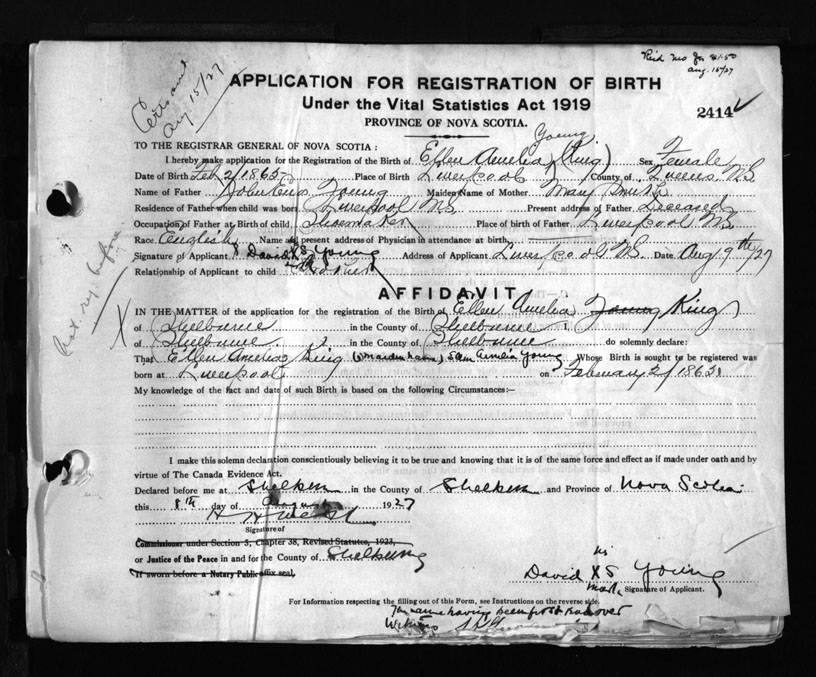 Aug 15/27
Aug. 15/27
APPLICATION FOR REGISTRATION OF BIRTH
Under the Vital Statistics Act 1919
2414
PROVINCE OF NOVA SCOTIA.
TO THE REGISTRAR GENERAL OF NOVA SCOTIA:
Young
I hereby make application for the Registration of the Birth of Ellen Amelia (King) Sex Female
Date of Birth Feb 2/1865 Place of Birth Liverpool County of Queens N.S.
Name of Father Young Maiden Name of Mother Mary
Residence of Father when child was born Liverpool N.S. Present address of Father Deceased
Occupation of Father at Birth of child Shoemaker Place of birth of Father Liverpool N.S.
Race English Name and present address of Physician in attendance at birth
Signature of Applicant David X S Young Address of Applicant Liverpool N.S. Date Aug 9th/27
Relationship of Applicant to child Brother
AFFIDAVIT
IN THE MATTER of the application for the registration of the Birth of Ellen Amelia Young King
X of Shelburne in the County of Shelburne
of Shelburne in the County of Shelburne do solemnly declare:
That Ellen Amelia King (maiden name) Amelia Young Whose Birth is sought to be registered was
born at Liverpool on February 2/1865
My knowledge of the fact and date of such Birth is based on the following Circumstances:—
I make this solemn declaration conscientiously believing it to be true and knowing that it is of the same force and effect as if made under oath and by
virtue of The Canada Evidence Act.
Declared before me at Shelburne in the County of Shelburne and Province of Nova Scotia
this 8th day of August 1927
Signature of
Commissioner under Section 5, Chapter 38, Revised Statutes, 1923,
or Justice of the Peace in and for the County of Shelburne
If sworn before a Notary Public affix seal.
his
David X S Young
mark Signature of Applicant.
For Information respecting the filling out of this Form, see Instructions on the reverse side.
The same having been first read over
Witness